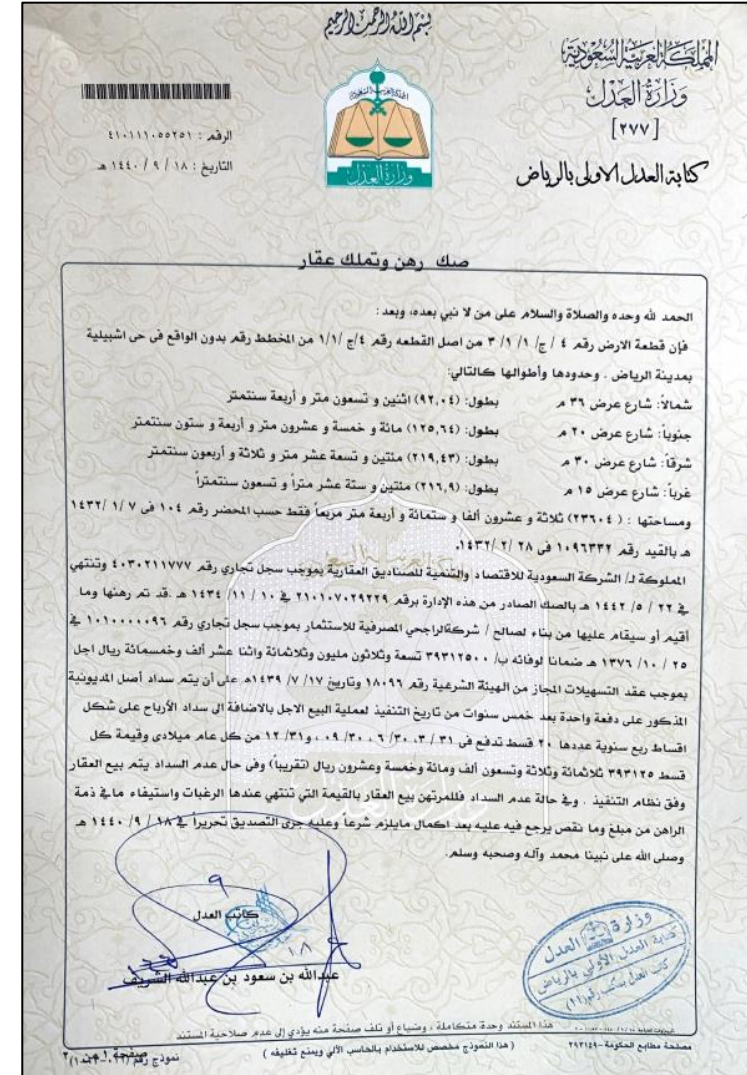 بسم الله الرحمن الرحيم
المملكة العربية السعودية
وزارة العدل
[٢٧٧]
كتابة العدل الاولى بالرياض
الرقم : ٤١٠١١١٠٥٥٢٥١
التاريخ : ١٨ / ٩ / ١٤٤٠ هـ
وزارة العدل
صك رهن وتملك عقار
الحمد لله وحده والصلاة والسلام على من لا نبي بعده، وبعد :
فإن قطعة الارض رقم ٤ / ج/ ١/ ١/ ٣ من اصل القطعه رقم ٤/ج /١/١ من المخطط رقم بدون الواقع في حى اشبيلية
بمدينة الرياض . وحدودها وأطوالها كالتالي:
شمالاً: شارع عرض ٣٦ م بطول: (٩٢,٠٤) اثنين و تسعون متر و أربعة سنتمتر
جنوباً: شارع عرض ٢٠ م بطول: (١٢٥,٦٤) مائة و خمسة و عشرون متر و أربعة و ستون سنتمتر
شرقاً: شارع عرض ٣٠ م بطول: (٢١٩,٤٣) منتين و تسعة عشر متر و ثلاثة و أربعون سنتمتر
غرباً: شارع عرض ١٥ م بطول: (٢١٦,٩) منتين و ستة عشر متراً و تسعون سنتمتراً
ومساحتها : ( ٢٣٦٠٤) ثلاثة و عشرون ألفا و ستمائة و أربعة متر مربعاً فقط حسب المحضر رقم ١٠٤ في ٧ /١ /١٤٣٢
هـ بالقيد رقم ١٠٩٦٣٣٢ في ٢٨ /٢ /١٤٣٢.
المملوكة لـ/ الشركة السعودية للاقتصاد والتنمية للصناديق العقارية بموجب سجل تجاري رقم ٤٠٣٠٢١١٧٧٧ وتنتهي
في ٢٢ / ٥/ ١٤٤٢ هـ بالصك الصادر من هذه الإدارة برقم ٢١٠١٠٧٠٢٩٢٢٩ في ١٠ / ١١/ ١٤٣٤ هـ .قد تم رهنها وما
أقيم أو سيقام عليها من بناء لصالح / شركةالراجحي المصرفية للاستثمار بموجب سجل تجاري رقم ١٠١٠٠٠٠٠٩٦ في
٢٥ / ١٠/ ١٣٧٦ هـ ضمانا لوفائه ب/ ٣٩٣١٢٥٠٠ تسعة وثلاثون مليون وثلاثمائة واثنا عشر ألف وخمسمائة ريال اجل
بموجب عقد التسهيلات المجاز من الهيئة الشرعية رقم ١٨٠٩٦ وتاريخ ١٧ /٧ /١٤٣٩هـ على أن يتم سداد أصل المديونية
المذكور على دفعة واحدة بعد خمس سنوات من تاريخ التنفيذ لعملية البيع الاجل بالاضافة الى سداد الأرباح على شكل
اقساط ربع سنوية عددها ٢٠ قسط تدفع في ٣١ / ٣، ٣٠/ ٦، ٣٠/ ٠٩، و ٣١/ ١٢ من كل عام ميلادى وقيمة كل
قسط ٣٩٣١٢٥ ثلاثمائة وثلاثة وتسعون ألف ومائة وخمسة وعشرون ريال (تقريباً) وفى حال عدم السداد يتم بيع العقار
وفق نظام التنفيذ . وفي حالة عدم السداد فللمرتهن بيع العقار بالقيمة التي تنتهي عندها الرغبات واستيفاء مافي ذمة
الراهن من مبلغ وما نقص يرجع فيه عليه بعد اكمال مايلزم شرعاً وعليه جرى التصديق تحريراً في ١٨ /٩ /١٤٤٠ هـ
وصلى الله على نبينا محمد وآله وصحبه وسلم.
كاتب العدل
عبدالله بن سعود بن عبدالله الشريف
وزارة العدل
كتابة العدل الأولى بالرياض
كاتب العدل بمكتب رقم (٢١)
هذا المستند وحدة متكاملة ، وضياع أو تلف صفحة منه يؤدي إلى عدم صلاحية المستند
مصلحة مطابع الحكومة-٢٩٣١٤٩
( هذا النموذج مخصص للاستخدام بالحاسب الآلي ويمنع تغليفه )
صفحة ١ من ٢